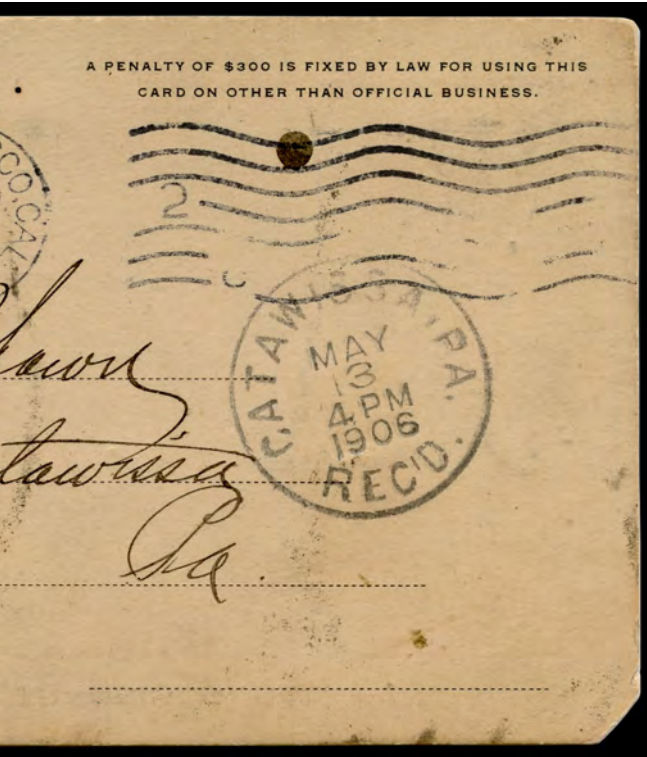 A PENALTY OF $300 IS FIXED BY LAW FOR USING THIS
CARD ON OTHER THAN OFFICIAL BUSINESS.
CO, CAL
2
CATAWISSA, PA.
MAY
13
4 PM
1906
REC'D.
tawissa
Pa.